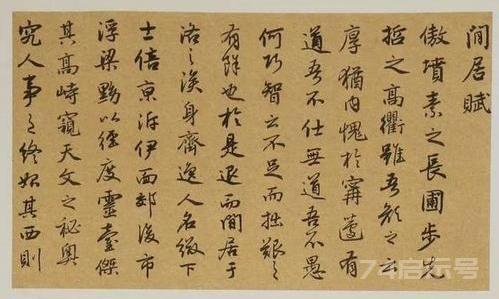 閒居賦
傲墳素之長圃步先
哲之高衢雖吾顏之云
厚猶內愧於甯蘧有
道吾不仕無道吾不愚
何巧智之不足而拙艱之
有餘也於是退而閒居于
洛之涘身齊逸人名綴下
士倍京泝伊面郊後市
浮梁黝以徑度靈臺傑
其高峙窺天文之秘奧
究人事之終始其西則
74启示号